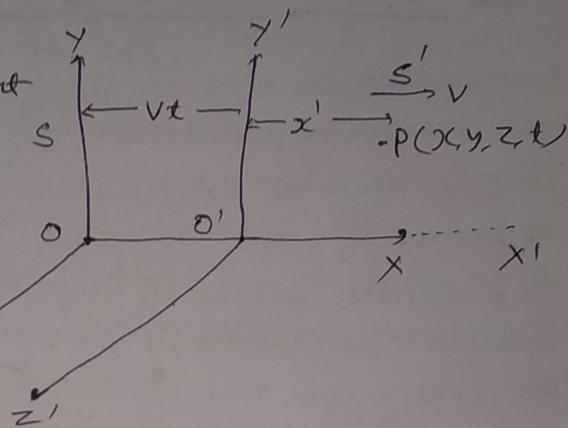 Y Y'
S' → V
S ← Vt → ← x' →
.P(x, y, z, t)
O O'
X X'
Z'